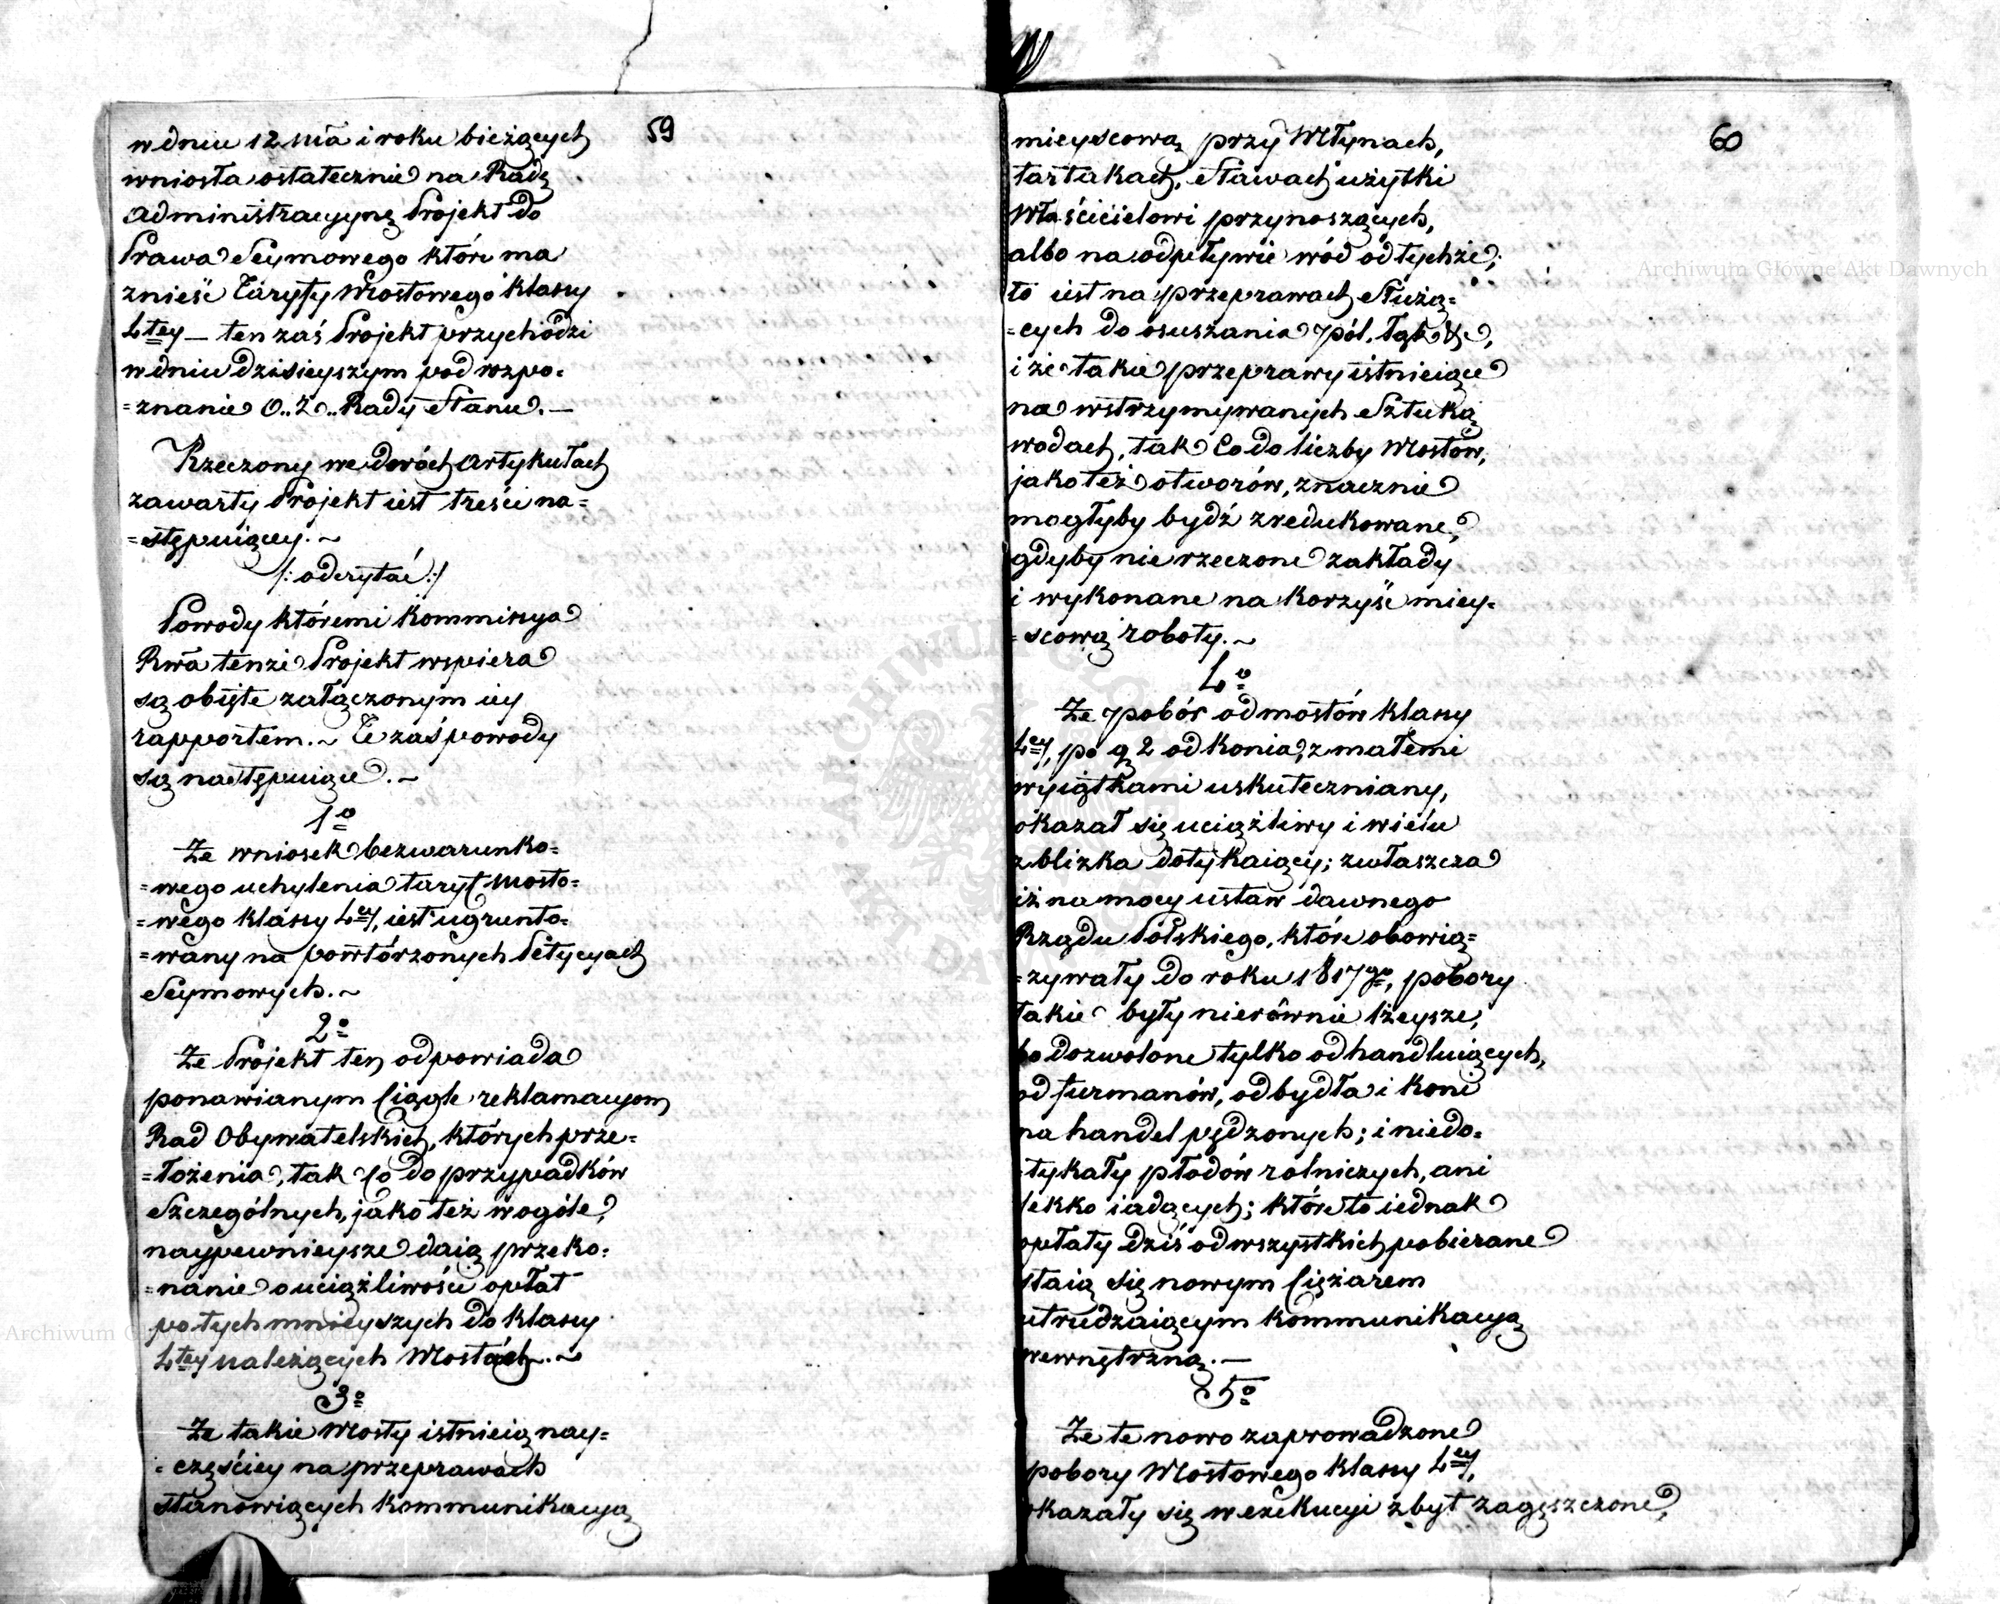 59
w dniu 12 ma i roku bieżących
wniosła ostatecznie na Radę
Administracyyną Projekt do
Prawa Seymowego które ma
znieść Taryfy Mostowego klassy
4tey — ten zaś Projekt przychodzi
w dniu dzisieyszym pod rozpo=
=znanie O..Z.. Rady Stanu. —
Rzeczony we dwóch artykułach
zawarty Projekt iest treści na=
=stępuiącey. ~
/: odczytać :/
Powody któremi Kommissya
Rwa tenże Projekt wspiera
są obięte załączonym iey
rapportem. ~ Te zaś powody
są następuiące. ~
1o
Że wniosek bezwarunko=
=wego uchylenia taryf mosto=
=wego klassy 4ey, iest ugrunto=
=wany na powtórzonych Petycyach
Seymowych. ~
2o
Że Projekt ten odpowiada
ponawianym ciągle reklamacyom
Rad Obywatelskich, których prze=
=łożenia, tak co do przypadków
szczególnych, jako też w ogóle,
naypewnieysze daią przeko=
=nanie o uciążliwości opłat
po tych mnieyszych do klassy
4tey należących Mostach. ~
3o
Że takie Mosty istnieią nay=
=częściey na przeprawach
stanowiących kommunikacyą
60
mieyscową przy Młynach,
tartakach, stawach użytki
Właścicielowi przynoszących,
albo na odpływie wód od tychże,
to iest na przeprawach służą=
=cych do osuszania pól, łąk &c,
i że takie przeprawy istnieiące
na wstrzymywanych sztuką
wodach, tak co do liczby Mostów,
jako też otworów, znacznie
mogłyby bydź zredukowane,
gdyby nie rzeczone zakłady
i wykonane na korzyść miey=
=scową roboty. ~
4o
Że pobór od mostów klassy
4ey, po g 2 od konia, z małemi
wyiątkami uskuteczniany,
okazał się uciążliwy i wielu
z blizka dotykaiący; zwłaszcza
iż na mocy ustaw dawnego
Rządu Polskiego, które obowią=
=zywały do roku 1817go, pobory
takie były nierównie lżeysze,
bo dozwolone tylko od handluiących,
od furmanów, od bydła i koni
na handel pędzonych; i niedo=
=tykały płodów rolniczych, ani
lekko iadących; które to iednak
opłaty dziś od wszystkich pobierane
staią się nowym ciężarem
utrudzaiącym kommunikacyą
wewnętrzną. —
5o
Że te nowo zaprowadzone
pobory Mostowego klassy 4ey,
okazały się w exekucyi zbyt zagęszczone,
Archiwum Główne Akt Dawnych